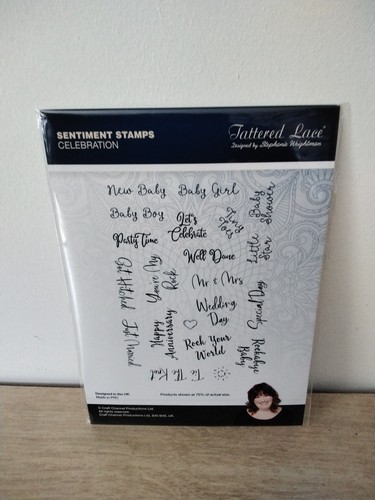 SENTIMENT STAMPS
CELEBRATION
Tattered Lace
Designed by Stephanie Weightman
New Baby
Baby Girl
Baby Shower
Baby Boy
Let's
Celebrate
Tiny
Toes
Party time
Little
Star
Well Done
Get Hitched
You're My
Rock
Mr & Mrs
Wedding
Day
Special Day
Just Married
Happy
Anniversary
Rock Your
World
Rockabye
Baby
Tie The Knot
Designed in the UK
Made in PRC
Products shown at 75% of actual size
© Craft Channel Productions Ltd
All rights reserved
Craft Channel Productions Ltd,